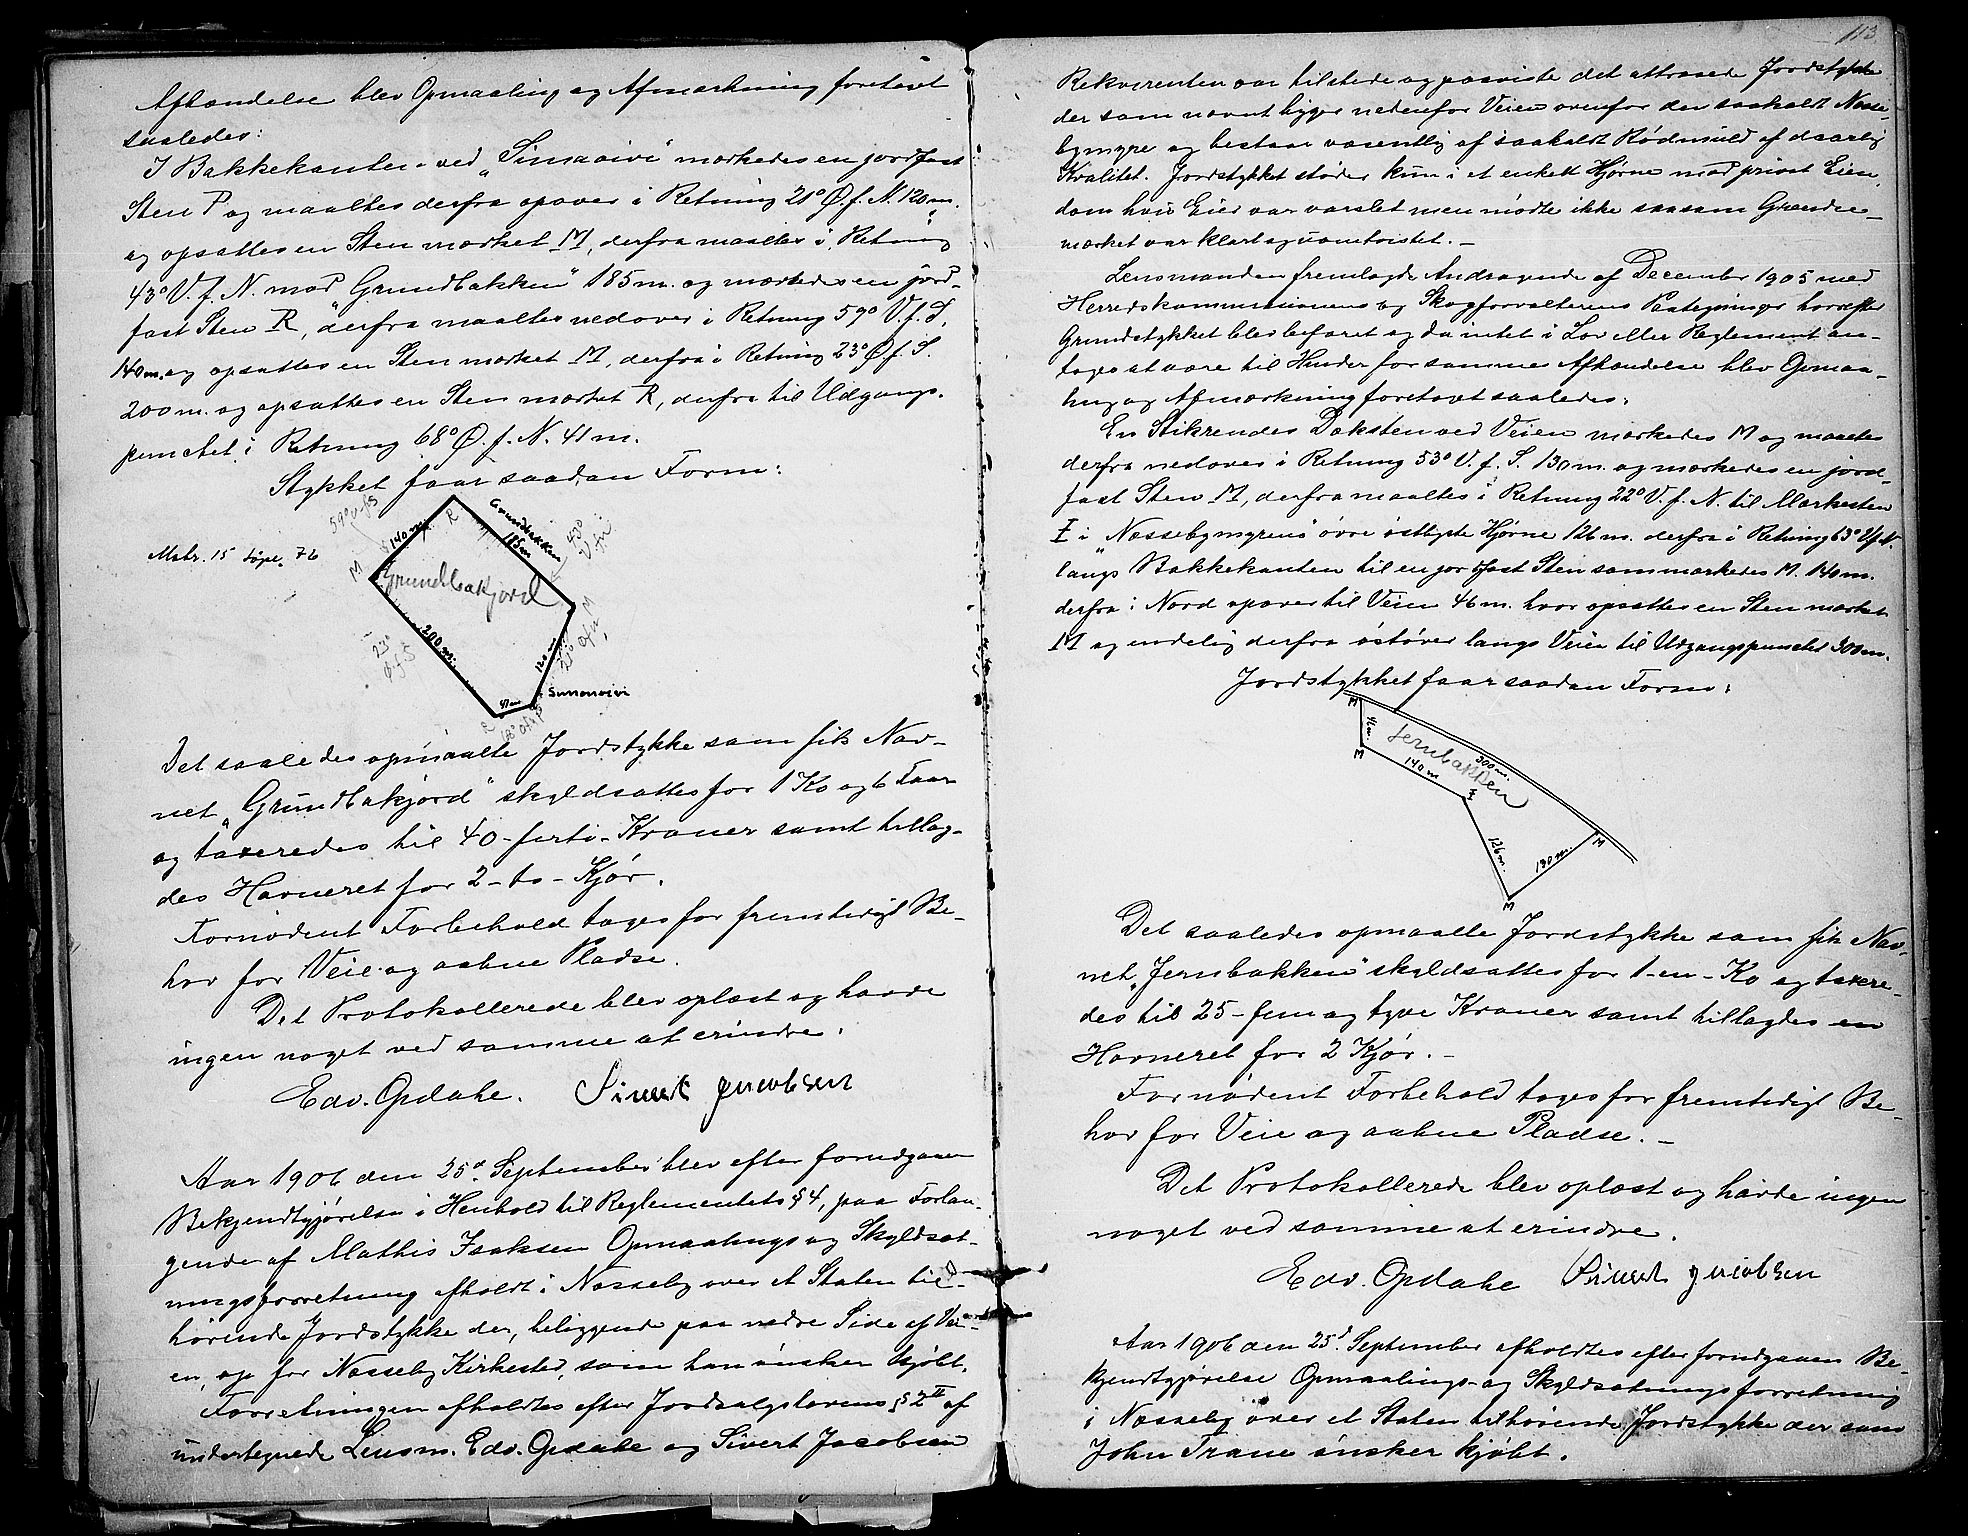 Afhændelse blev Opmaaling og Afmærkning foretaget
saaledes:
I Bakkekanten ved „Simaaivi" mærkedes en jordfast
Sten P og maaltes derfra opover i Retning 21° Ø. f. N. 120 m.
og opsattes en Sten mærket M, derfra maaltes i Retning
43° V. f. N. mod „Grundbakken" 185 m. og mærkedes en jord-
fast Sten R, derfra maaltes nedover i Retning 59° V. f. S.
140 m. og opsattes en Sten mærket M, derfra i Retning 23° Ø. f. S.
200 m. og opsattes en Sten mærket R, derfra til Udgangs-
punctet i Retning 68° Ø. f. N. 41 m.
Stykket faar saadan Form:
59° V. f. S
140 m.
R
Grundbakken
185 m
43° V. f. N
Mbr. 15 76
M
Grundbakjord
M
23° Ø f S
200 m.
120 m.
21° Ø f N
Simanaivi
41 m
R
68° Ø f N
P
Det saaledes opmaalte Jordstykke som fik Nav-
net „Grundbakjord" skyldsattes for 1 Ko og 6 Faar
og taxeredes til 40 - forti - Kroner samt tillag-
des Havneret for 2 - to - Kjør.
Fornødent Forbehold toges for fremtidigt Be-
hov for Veie og aabne Pladse.
Det Protokollerede blev oplæst og havde
ingen noget ved samme at erindre.
Edv. Opdahl. Sivert Jacobsen
Aar 1906 den 25d. September blev efter forudgaaen
Bekjendtgjørelse i Henhold til Reglementets § 4, paa Forlan-
gende af Mathis Isaksen Opmaalings og Skyldsæt-
ningsforretning afholdt i Næsseby over et Staten til-
hørende Jordstykke der, beliggende paa nedre Side af Vei-
en, op for Næsseby Kirkested, som han ønsker kjøbt.
Forretningen afholdtes efter Jordsalgslovens § 2 II af
undertegnede Lensm. Edv. Opdahl og Sivert Jacobsen
113
Rekvirenten var tilstede og paaviste det attraaede Jordstykke
der som nævnt ligger nedenfor Veien ovenfor den saakaldt Næsse-
bymyre og bestaar væsentlig af saakaldt Rødmuld af daarlig
Kvalitet. Jordstykket støder kun i et enkelt Hjørne mod privat Eien-
dom hvis Eier var varslet men mødte ikke saasom Grændse-
mærket var klart og uomtvistet. -
Lensmanden fremlagde Andragende af December 1905 med
Herredskommissionens og Skogforvalterens Paategninger hvorefter
Grundstykket blev befaret og da intet i Lov eller Reglement an-
toges at være til Hinder for samme Afhændelse blev Opmaa-
ling og Afmærkning foretaget saaledes:
En Stikrendes Dæksten ved Veien mærkedes M og maaltes
derfra nedover i Retning 53° V. f. S. 130 m. og mærkedes en jord-
fast Sten M, derfra maaltes i Retning 22° V. f. N. til Mærkesten
I i „Næssebymyrens" øvre østligste Hjørne 126 m. derfra i Retning 63° V. f. N.
langs Bakkekanten til en jordfast Sten som mærkedes M. 140 m.
derfra i Nord opover til Veien 46 m. hvor opsattes en Sten mærket
M og endelig derfra østover langs Veien til Udgangspunctet 300 m.
Jordstykket faar saadan Form:
M
Jernbakken
300 m.
M
140 m
I
126 m.
130 m.
M
M
Det saaledes opmaalte Jordstykke som fik Nav-
net „Jernbakken" skyldsattes for 1 - en - Ko og taxere-
des til 25 - fem og tyve Kroner samt tillagdes en
Havneret for 2 Kjør. -
Fornødent Forbehold toges for fremtidigt Be-
hov for Veie og aabne Pladse. -
Det Protokollerede blev oplæst og havde ingen
noget ved samme at erindre.
Edv. Opdahl Sivert Jacobsen
Aar 1906 den 25d. September afholdtes efter forudgaaen Be-
kjendtgjørelse Opmaalings- og Skyldsætningsforretning
i Næsseby over et Staten tilhørende Jordstykke der som
John Trane ønsker kjøbt.